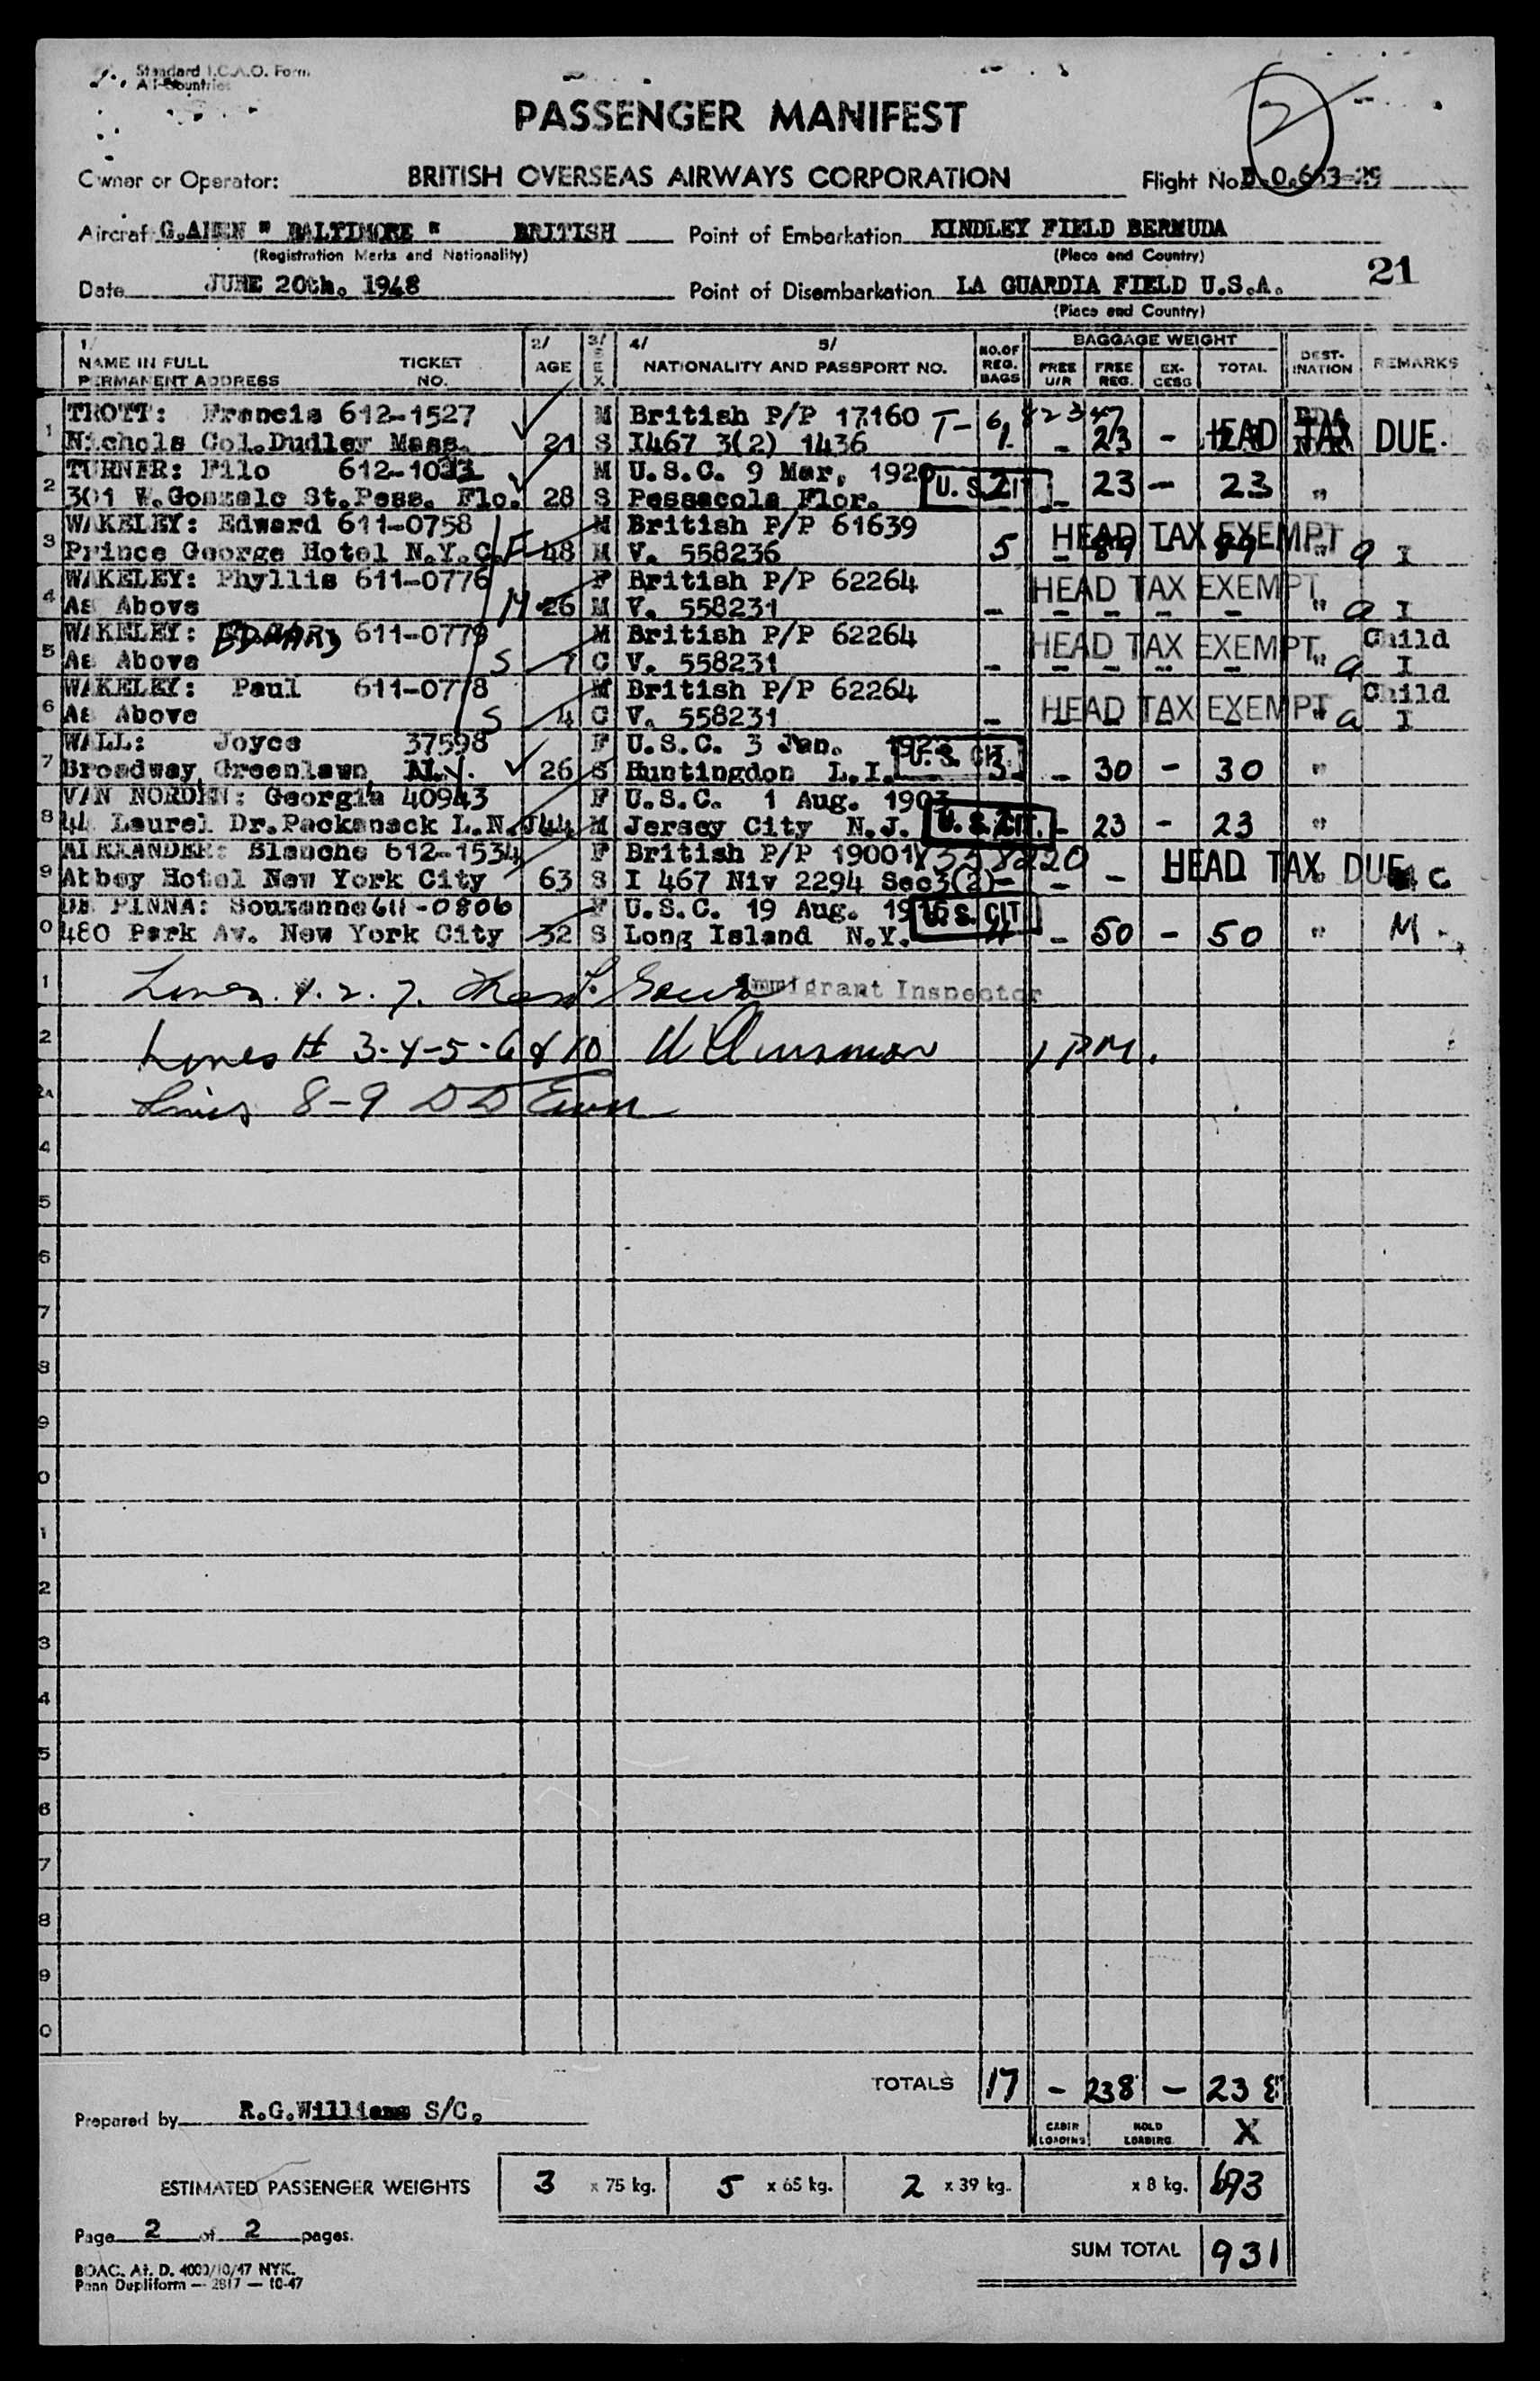 Standard I.C.A.O. Form
All Countries
2
PASSENGER MANIFEST
Owner or Operator: BRITISH OVERSEAS AIRWAYS CORPORATION Flight No.
Aircraft G.AHEN " BALTIMORE " BRITISH Point of Embarkation KINDLEY FIELD BERMUDA
(Registration Marks and Nationality) (Place and Country)
21
Date JUNE 20th. 1948 Point of Disembarkation LA GUARDIA FIELD U.S.A.
(Place and Country)
1/ NAME IN FULL PERMANENT ADDRESS TICKET NO. 2/ AGE 3/ SEX 4/ 5/ NATIONALITY AND PASSPORT NO. NO.OF REG. BAGS BAGGAGE WEIGHT FREE U/R FREE REG. EX-CESS TOTAL DEST-INATION REMARKS
1 TROTT: Francis 612-1527 M British P/P 17160 T-
Nichols Col.Dudley Mass. 21 S I467 3(2) 1436 1 - 23 - HEAD TAX DUE.
2 TURNER: Filo M U.S.C. 9 Mar, 1920 U. S. CIT
301 W.Gonzalc St.Pess. Flo. 28 S Pessacola Flor. 2 - 23 - 23 "
3 WAKELEY: Edward 611-0758 M British P/P 61639 HEAD TAX EXEMPT
Prince George Hotel N.Y.C. F 48 M V. 558236 5 - 89 - 89 " a I
4 WAKELEY: Phyllis 611-0776 F British P/P 62264 HEAD TAX EXEMPT
As Above M 26 M V. 558231 - - - - - " a I
5 WAKELEY: EDWARD 611-0779 M British P/P 62264 HEAD TAX EXEMPT Child
As Above S 7 C V. 558231 - - - - - " a I
6 WAKELEY: Paul 611-0778 M British P/P 62264 HEAD TAX EXEMPT Child
As Above S 4 C V. 558231 - - - - - " a I
7 WALL: Joyce 37598 F U.S.C. 3 Jan. U. S. CIT.
Broadway, Greenlawn N.Y. 26 S Huntingdon L.I. 3 - 30 - 30 "
8 VAN NORDEN: Georgia 40943 F U.S.C. 1 Aug. 1903
44 Laurel Dr.Packanack L.N.J 44 M Jersey City N.J. U. S. CIT. - 23 - 23 "
9 ALEXANDER: Blanche 612-1534 F British P/P 19001 V358220 HEAD TAX DUE
Abbey Hotel New York City 63 S I 467 Niv 2294 Sec3(2) - - - C
0 DE PINNA: Souzanne 611-0806 F U.S.C. 19 Aug. U. S. CIT
480 Park Av. New York City 32 S Long Island N.Y. 4 - 50 - 50 " M
1 Lines 1. 2. 7. Immigrant Inspector
2 Lines # 3-4-5-6 & 10 1 PM.
2A Lines 8-9
4
5
6
7
8
9
0
1
2
3
4
5
6
7
8
9
0
TOTALS 17 - 238 - 238
Prepared by R.G.Williams S/C.
CABIN LOADING HOLD LOADING X
ESTIMATED PASSENGER WEIGHTS 3 x 75 kg. 5 x 65 kg. 2 x 39 kg. x 8 kg. 693
Page 2 of 2 pages.
SUM TOTAL 931
BOAC. At. D. 4000/10/47 NYK.
Penn Dupliform — 2817 — 10-47